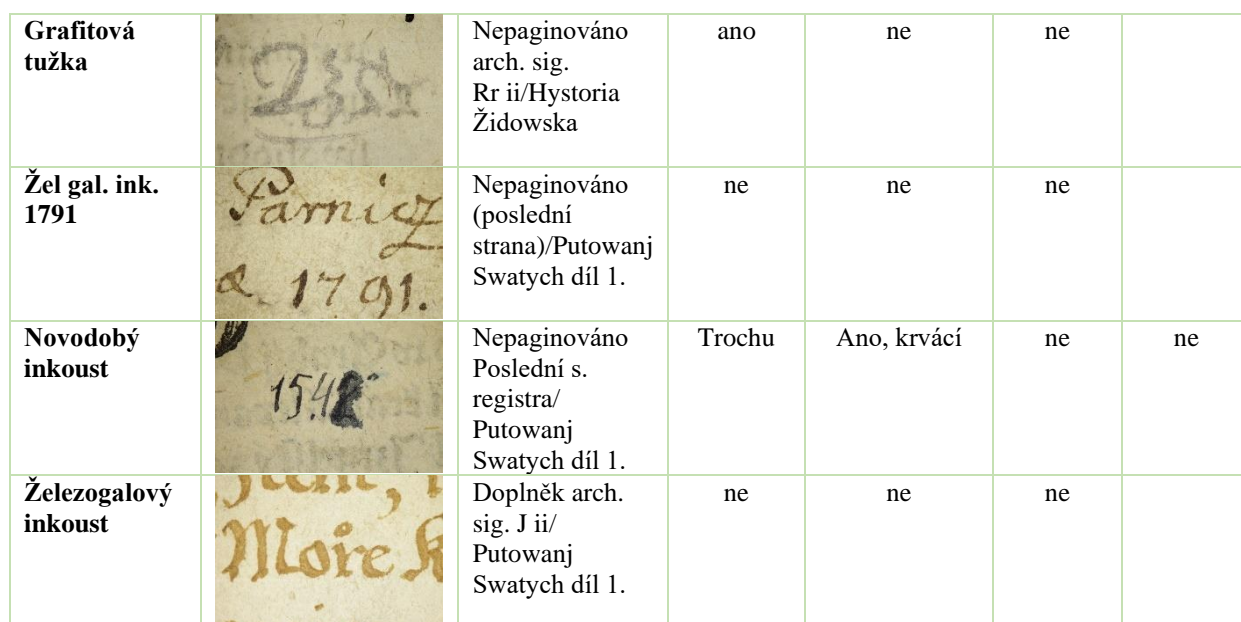 Grafitová
tužka
Nepaginováno
arch. sig.
Rr ii/Hystoria
Židowska
ano
ne
ne
Žel gal. ink.
1791
Parnicz
1791.
Nepaginováno
(poslední
strana)/Putowanj
Swatych díl 1.
ne
ne
ne
Novodobý
inkoust
154
Nepaginováno
Poslední s.
registra/
Putowanj
Swatych díl 1.
Trochu
Ano, krvácí
ne
ne
Železogalový
inkoust
Moře
Doplněk arch.
sig. J ii/
Putowanj
Swatych díl 1.
ne
ne
ne